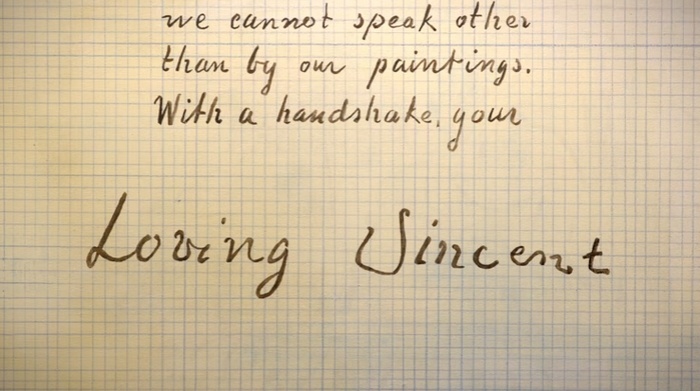 we cannot speak other
than by our paintings.
With a handshake, your
Loving Vincent